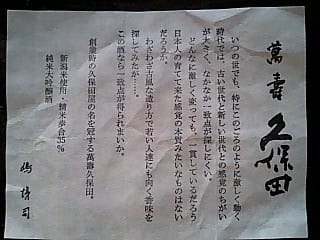 萬寿
久保田
いつの世でも、特にこのごろのように激しく動く
時代では、古い世代と新しい世代との感覚のちがい
が大きく、なかなか一致点が探しにくい。
どんなに激しく変っても、一貫しているだろう
日本人の育てて来た感覚の本質みたいなものはない
だろうか。
わざわざ古風な造り方で若い人達にも向く香味を
探してみたが……。
この酒なら一致点が得られまいか。
創業時の久保田屋の名を冠する萬寿久保田。
新潟米使用・精米歩合35%
純米大吟醸酒
嶋悌司